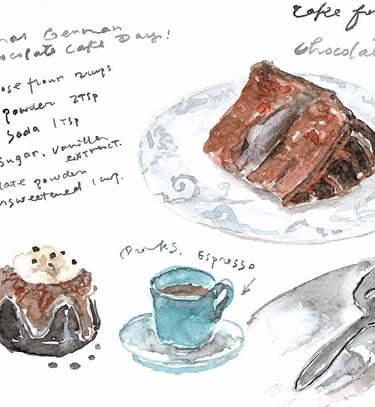 nal German
ocolate Cake Day!
ose flour 2cups
powder 2tsp
Soda 1tsp
sugar, vanilla
extract.
late powder
nsweetened 1 cup.
Cake for
Chocolat
Drinks, Espresso